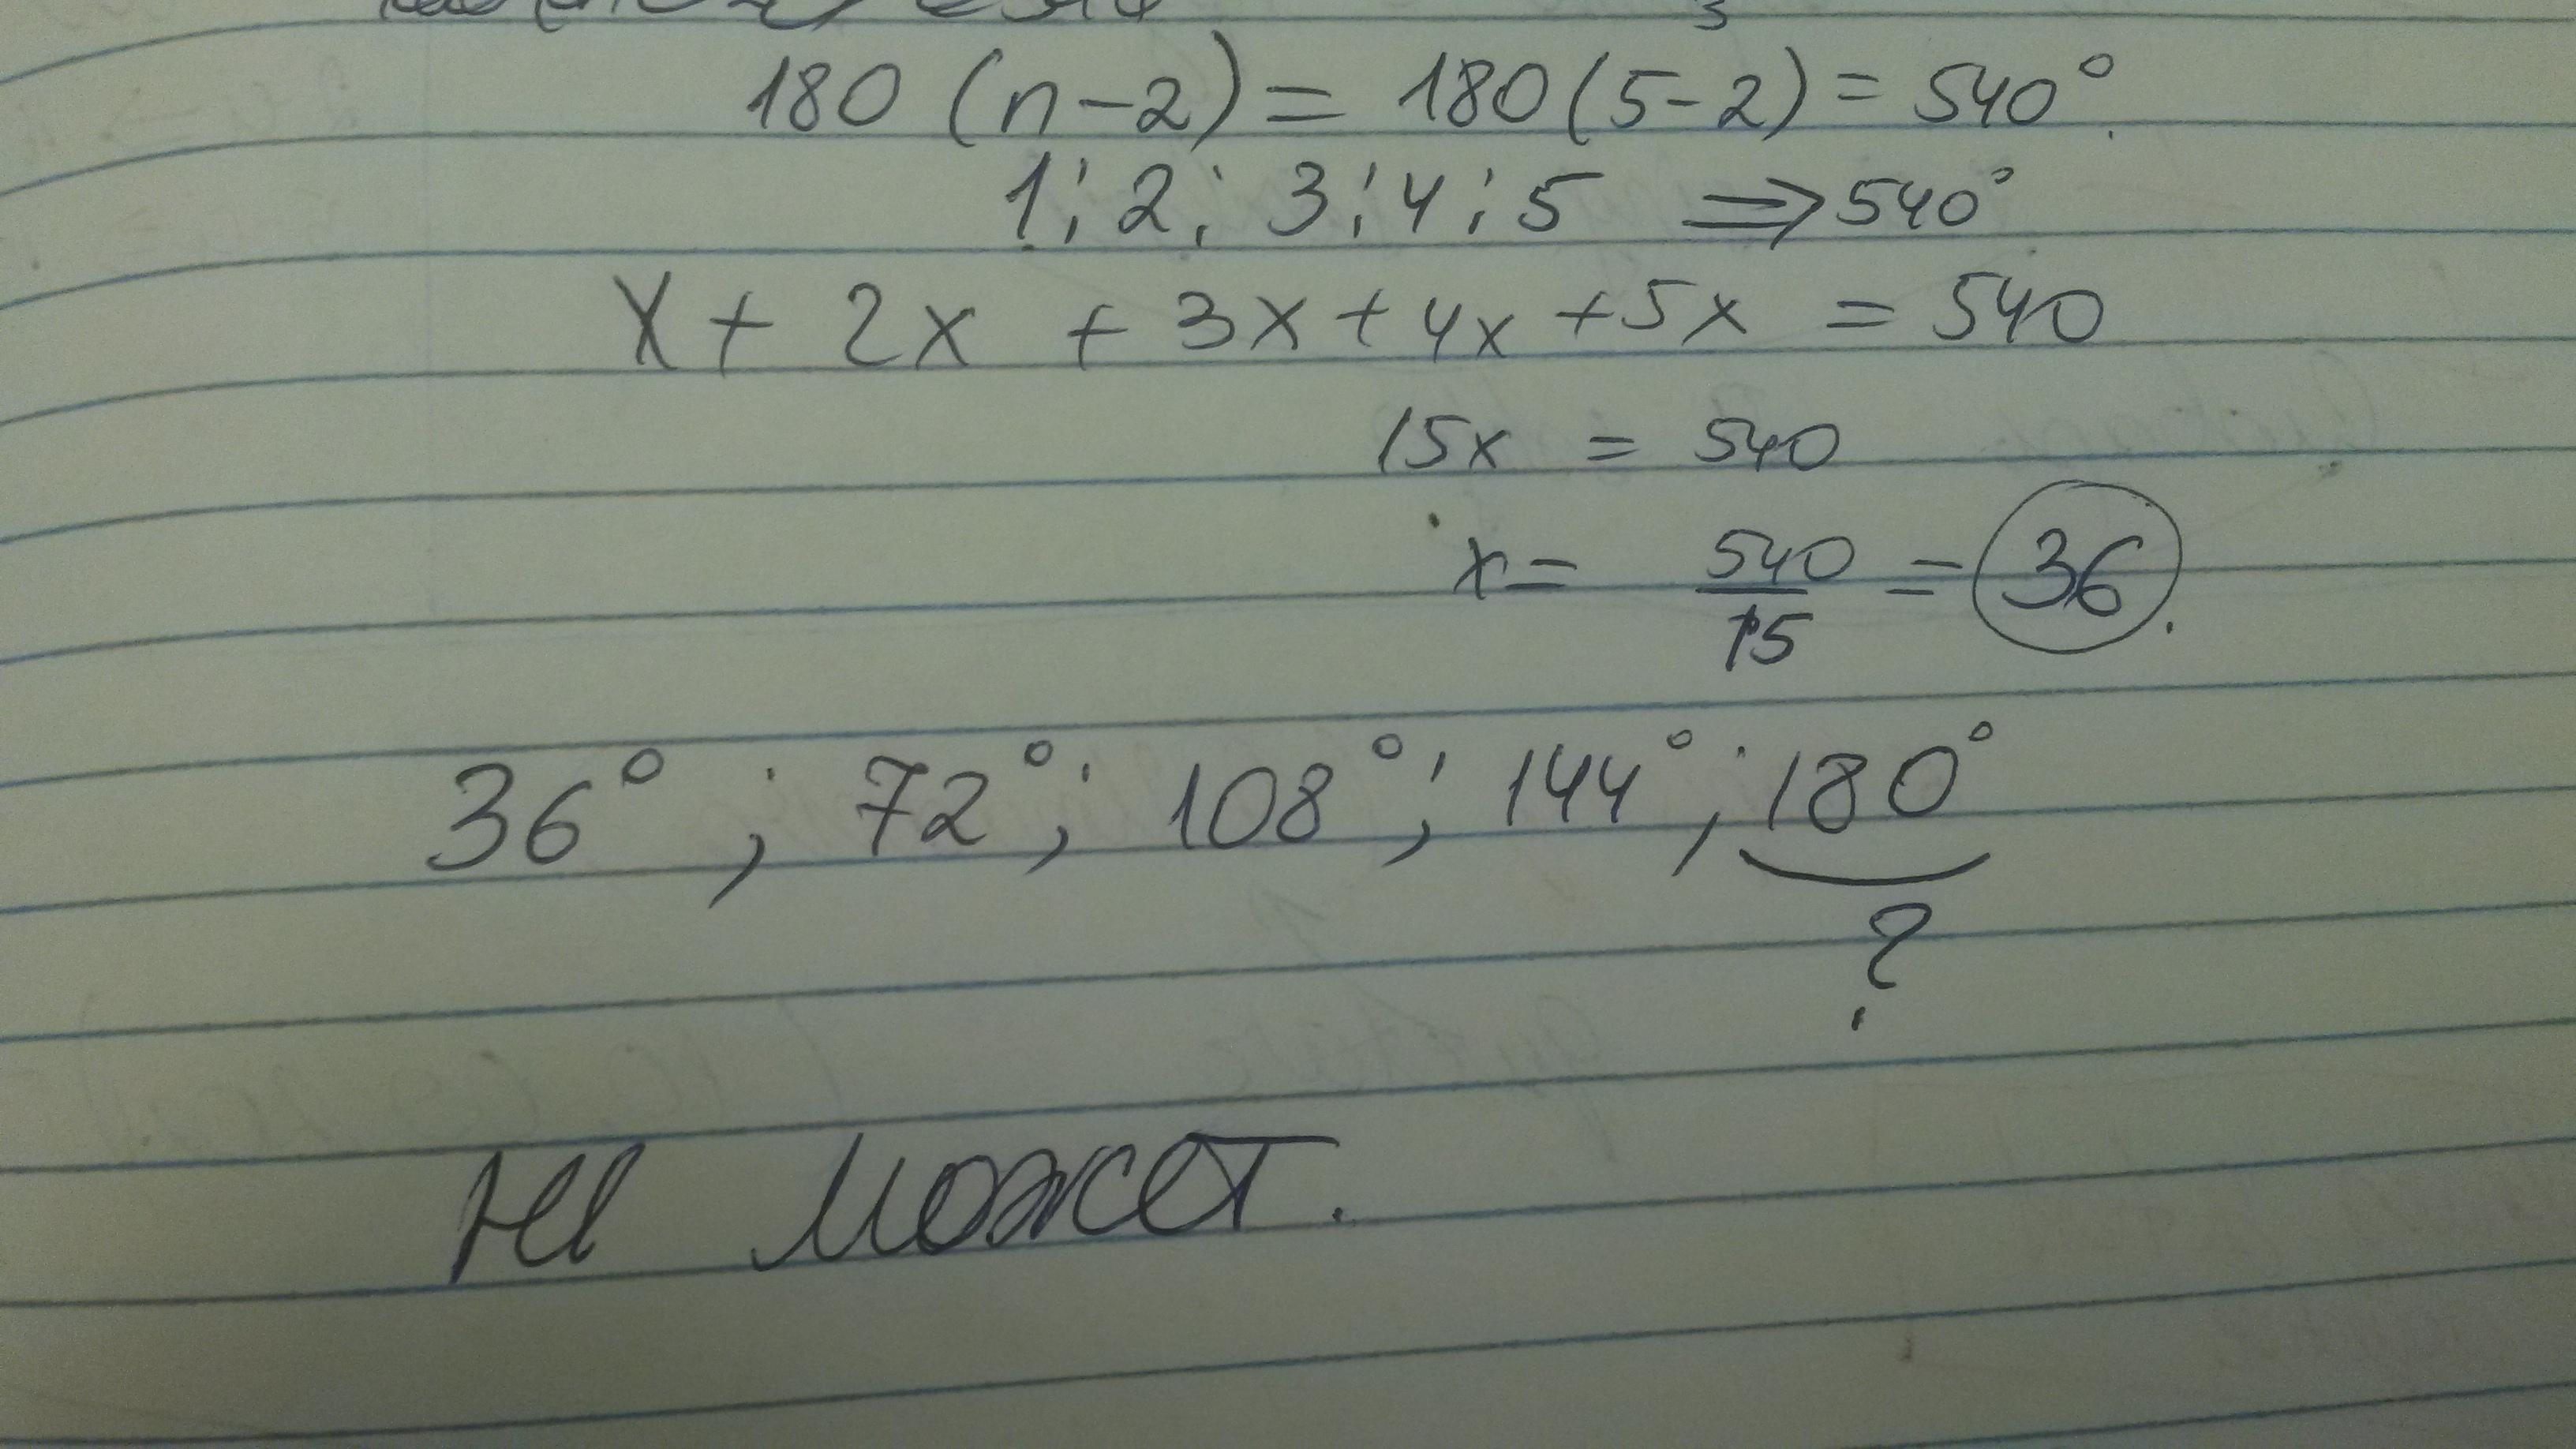 180 (n-2) = 180(5-2) = 540°.
1; 2; 3; 4; 5 ⇒ 540°
x + 2x + 3x + 4x + 5x = 540
15x = 540
x = 540/15 = 36.
36° ; 72° ; 108° ; 144° ; 180°
?
не может.